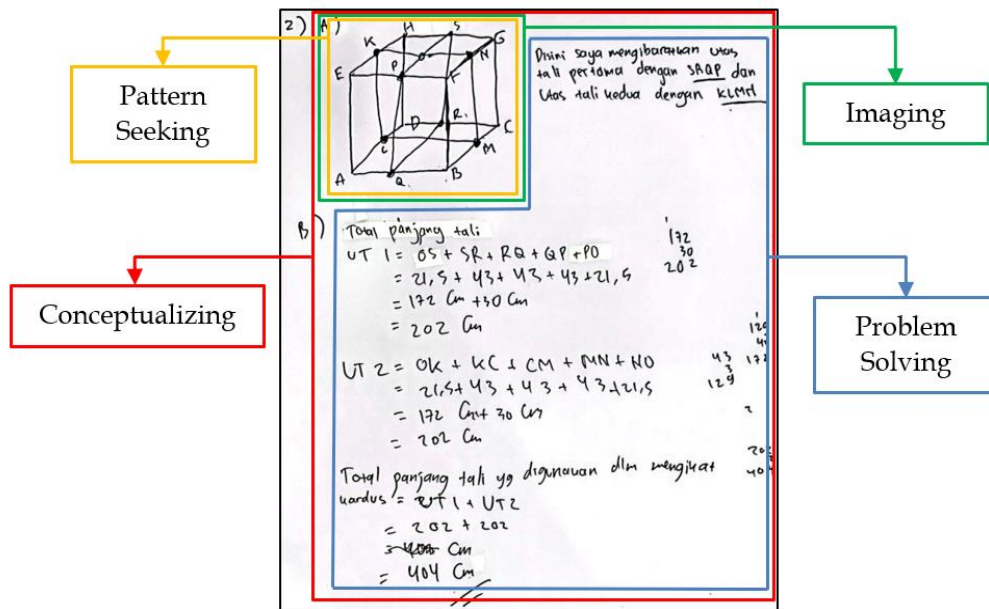 Pattern
Seeking
Imaging
Conceptualizing
Problem
Solving
2) A)
H S G
K O N
E P F
D R C
L M
A Q B
Disini saya mengibaratkan utas
tali pertama dengan SRQP dan
Utas tali kedua dengan KLMN
B) Total panjang tali
UT 1 = OS + SR + RQ + QP + PO
= 21,5 + 43 + 43 + 43 + 21,5
= 172 Cm + 30 Cm
= 202 Cm
172
30
202
UT 2 = OK + KC + CM + MN + NO
= 21,5 + 43 + 43 + 43 + 21,5
= 172 Cm + 30 Cm
= 202 Cm
43
3
129
Total panjang tali yg digunakan dlm mengikat
kardus = UT 1 + UT 2
= 202 + 202
= 404 Cm